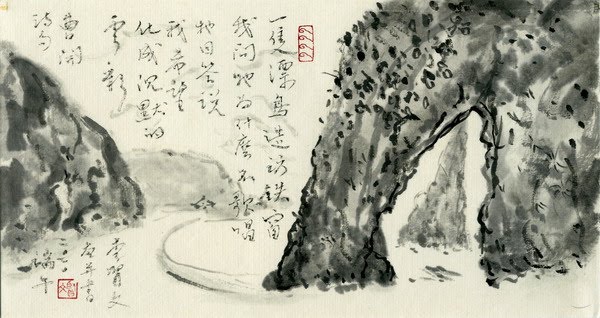 一隻漂鳥造訪鐵窗
我問牠為什麼不歌唱
牠回答說
我希望
化成沉默的
雲影
曹開
詩句
李賢文
二〇二〇
端午